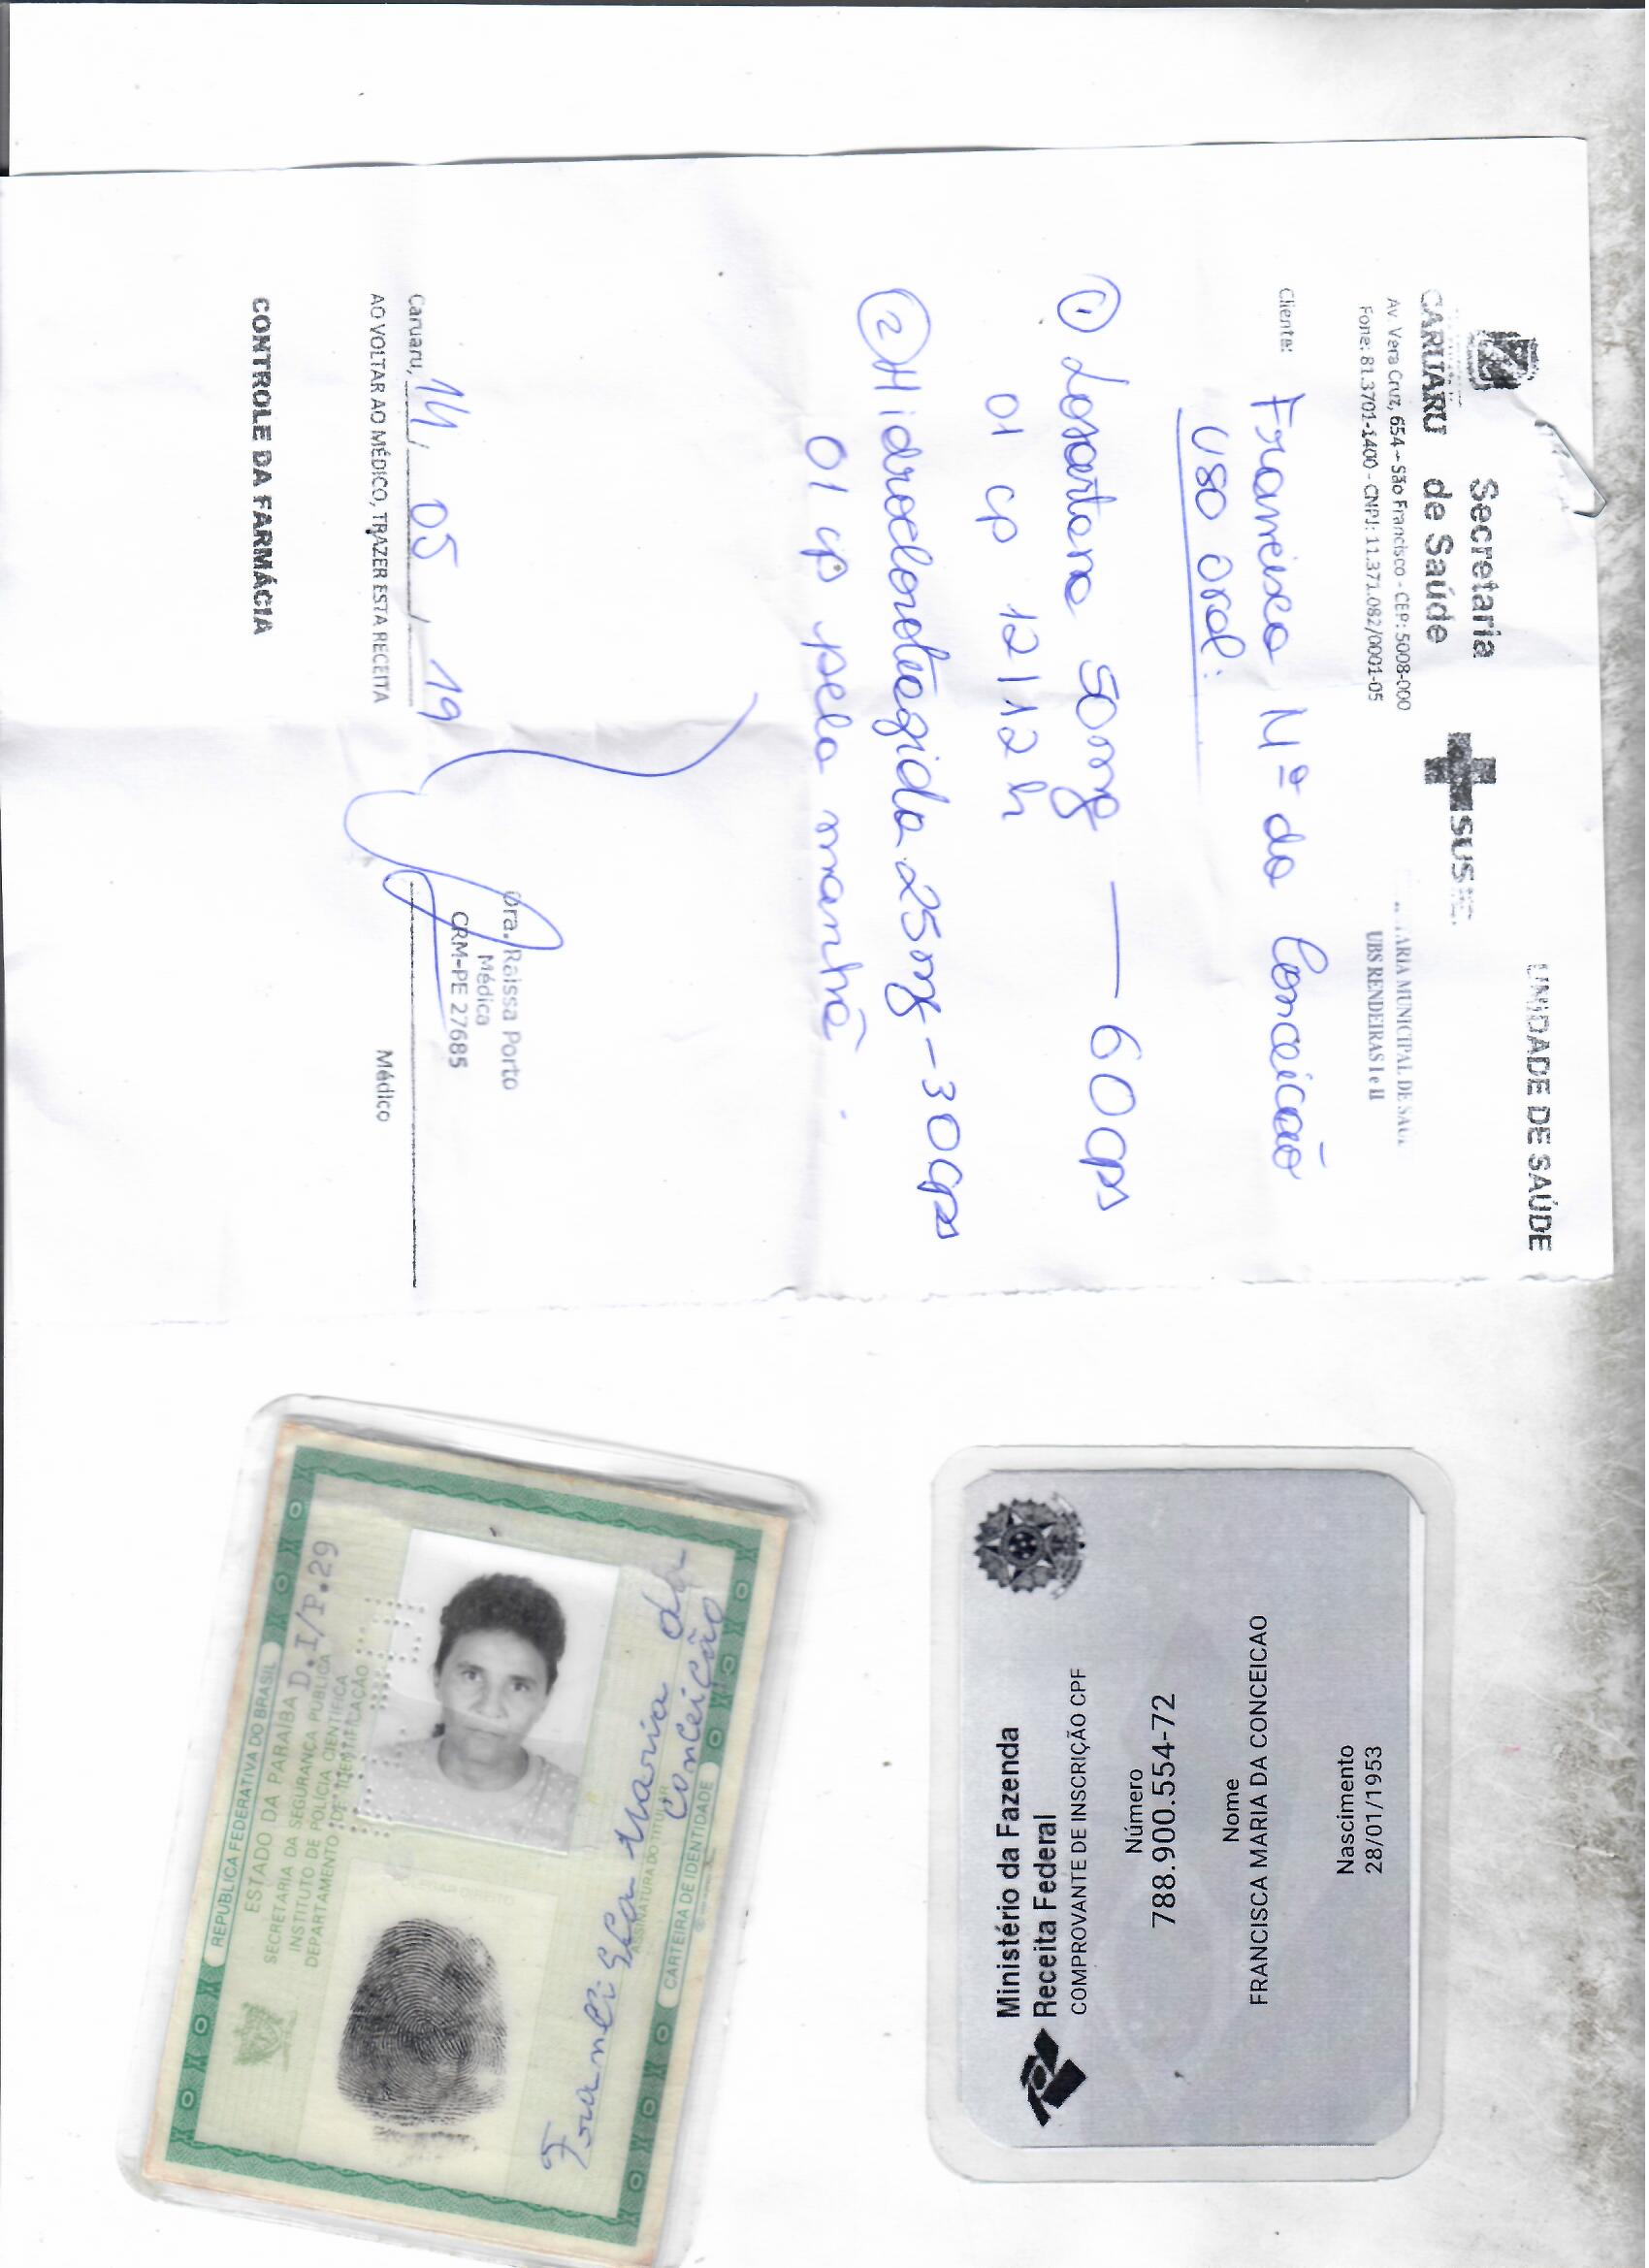 UNIDADE DE SAÚDE
Secretaria
CARUARU de Saúde SUS
Av Vera Cruz, 654 - São Francisco - CEP: 5008-000
Fone: 81.3701-1400 - CNPJ: 11.371.082/0001-05
ARIA MUNICIPAL DE SAÚ
UBS RENDEIRAS I e II
Cliente: Francisca Mª da Conceicão
USO oral:
① Losartana 50mg — 60cps
01 cp 12/12h
② Hidroclorotiazida 25mg - 30cps
01 cp pela manhã.
Dra. Raissa Porto
Médica
CRM-PE 27685
Caruaru, 14 / 05 / 19
Médico
AO VOLTAR AO MÉDICO, TRAZER ESTA RECEITA
CONTROLE DA FARMÁCIA
REPÚBLICA FEDERATIVA DO BRASIL
ESTADO DA PARAÍBA D.I/P.29
SECRETARIA DA SEGURANÇA PÚBLICA
INSTITUTO DE POLÍCIA CIENTÍFICA
DEPARTAMENTO DE IDENTIFICAÇÃO
Francisca Maria da
Conceição
ASSINATURA DO TITULAR
CARTEIRA DE IDENTIDADE
Ministério da Fazenda
Receita Federal
COMPROVANTE DE INSCRIÇÃO CPF
Número
788.900.554-72
Nome
FRANCISCA MARIA DA CONCEICAO
Nascimento
28/01/1953